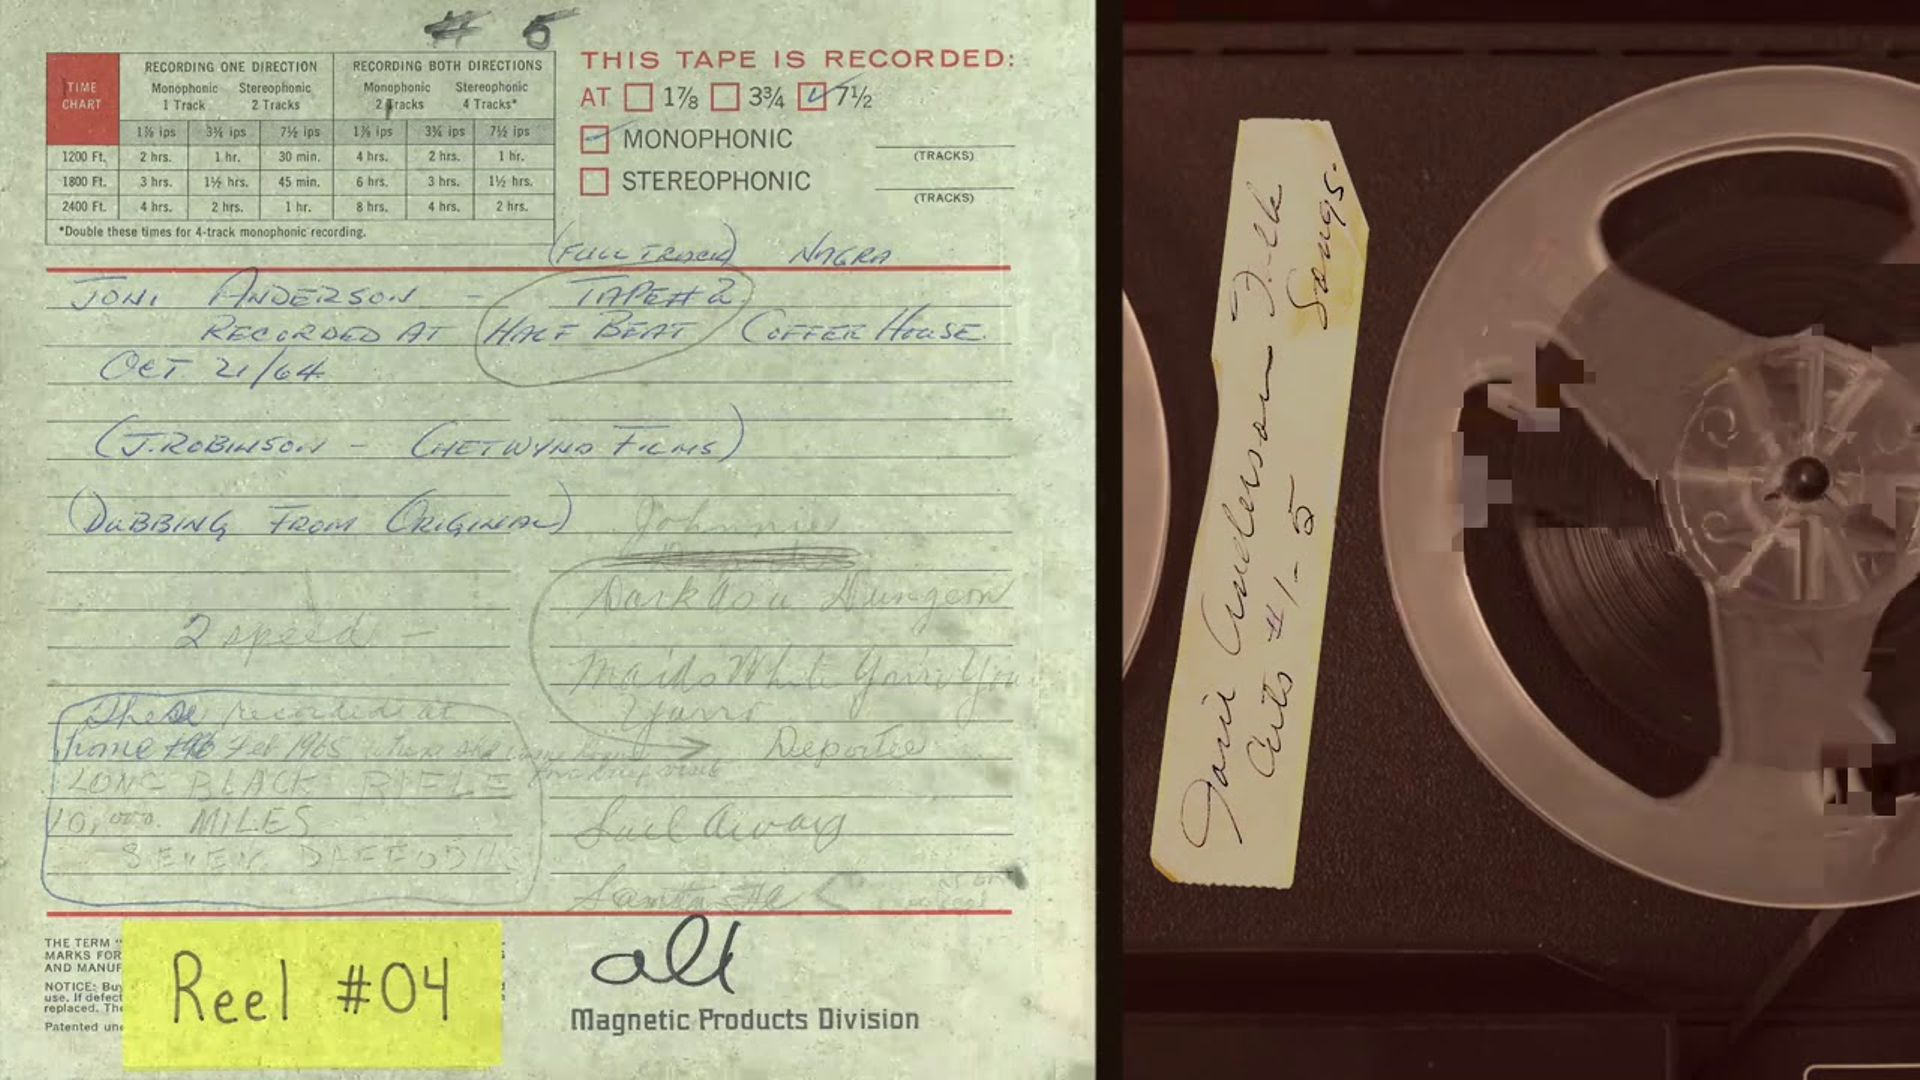 # 5
TIME CHART
RECORDING ONE DIRECTION
RECORDING BOTH DIRECTIONS
Monophonic 1 Track
Stereophonic 2 Tracks
Monophonic 2 Tracks
Stereophonic 4 Tracks*
1⅞ ips 3¾ ips 7½ ips 1⅞ ips 3¾ ips 7½ ips
1200 Ft. 2 hrs. 1 hr. 30 min. 4 hrs. 2 hrs. 1 hr.
1800 Ft. 3 hrs. 1½ hrs. 45 min. 6 hrs. 3 hrs. 1½ hrs.
2400 Ft. 4 hrs. 2 hrs. 1 hr. 8 hrs. 4 hrs. 2 hrs.
*Double these times for 4-track monophonic recording.
THIS TAPE IS RECORDED:
AT 1⅞ 3¾ 7½
MONOPHONIC
(TRACKS)
STEREOPHONIC
(TRACKS)
(FULL TRACK) NAGRA
JONI ANDERSON - TAPE # 2
RECORDED AT HALF BEAT COFFEE HOUSE.
OCT 21/64
(J. ROBINSON - CHETWYND FILMS)
(DUBBING FROM ORIGINAL)
Johnnie
Dark As a Dungeon
2 speed -
Maids When You're You
These recorded at
home Feb 1965 when she
LONG BLACK RIFLE
10,000. MILES
SEVEN DAFFODILS
Deportee
Sail Away
THE TERM "
MARKS FOR
AND MANUF
NOTICE: Buy
use. If defect
replaced. The
Patented und
Reel #04
all
Magnetic Products Division
Joni Anderson Folk Songs.
Cuts # 1-5